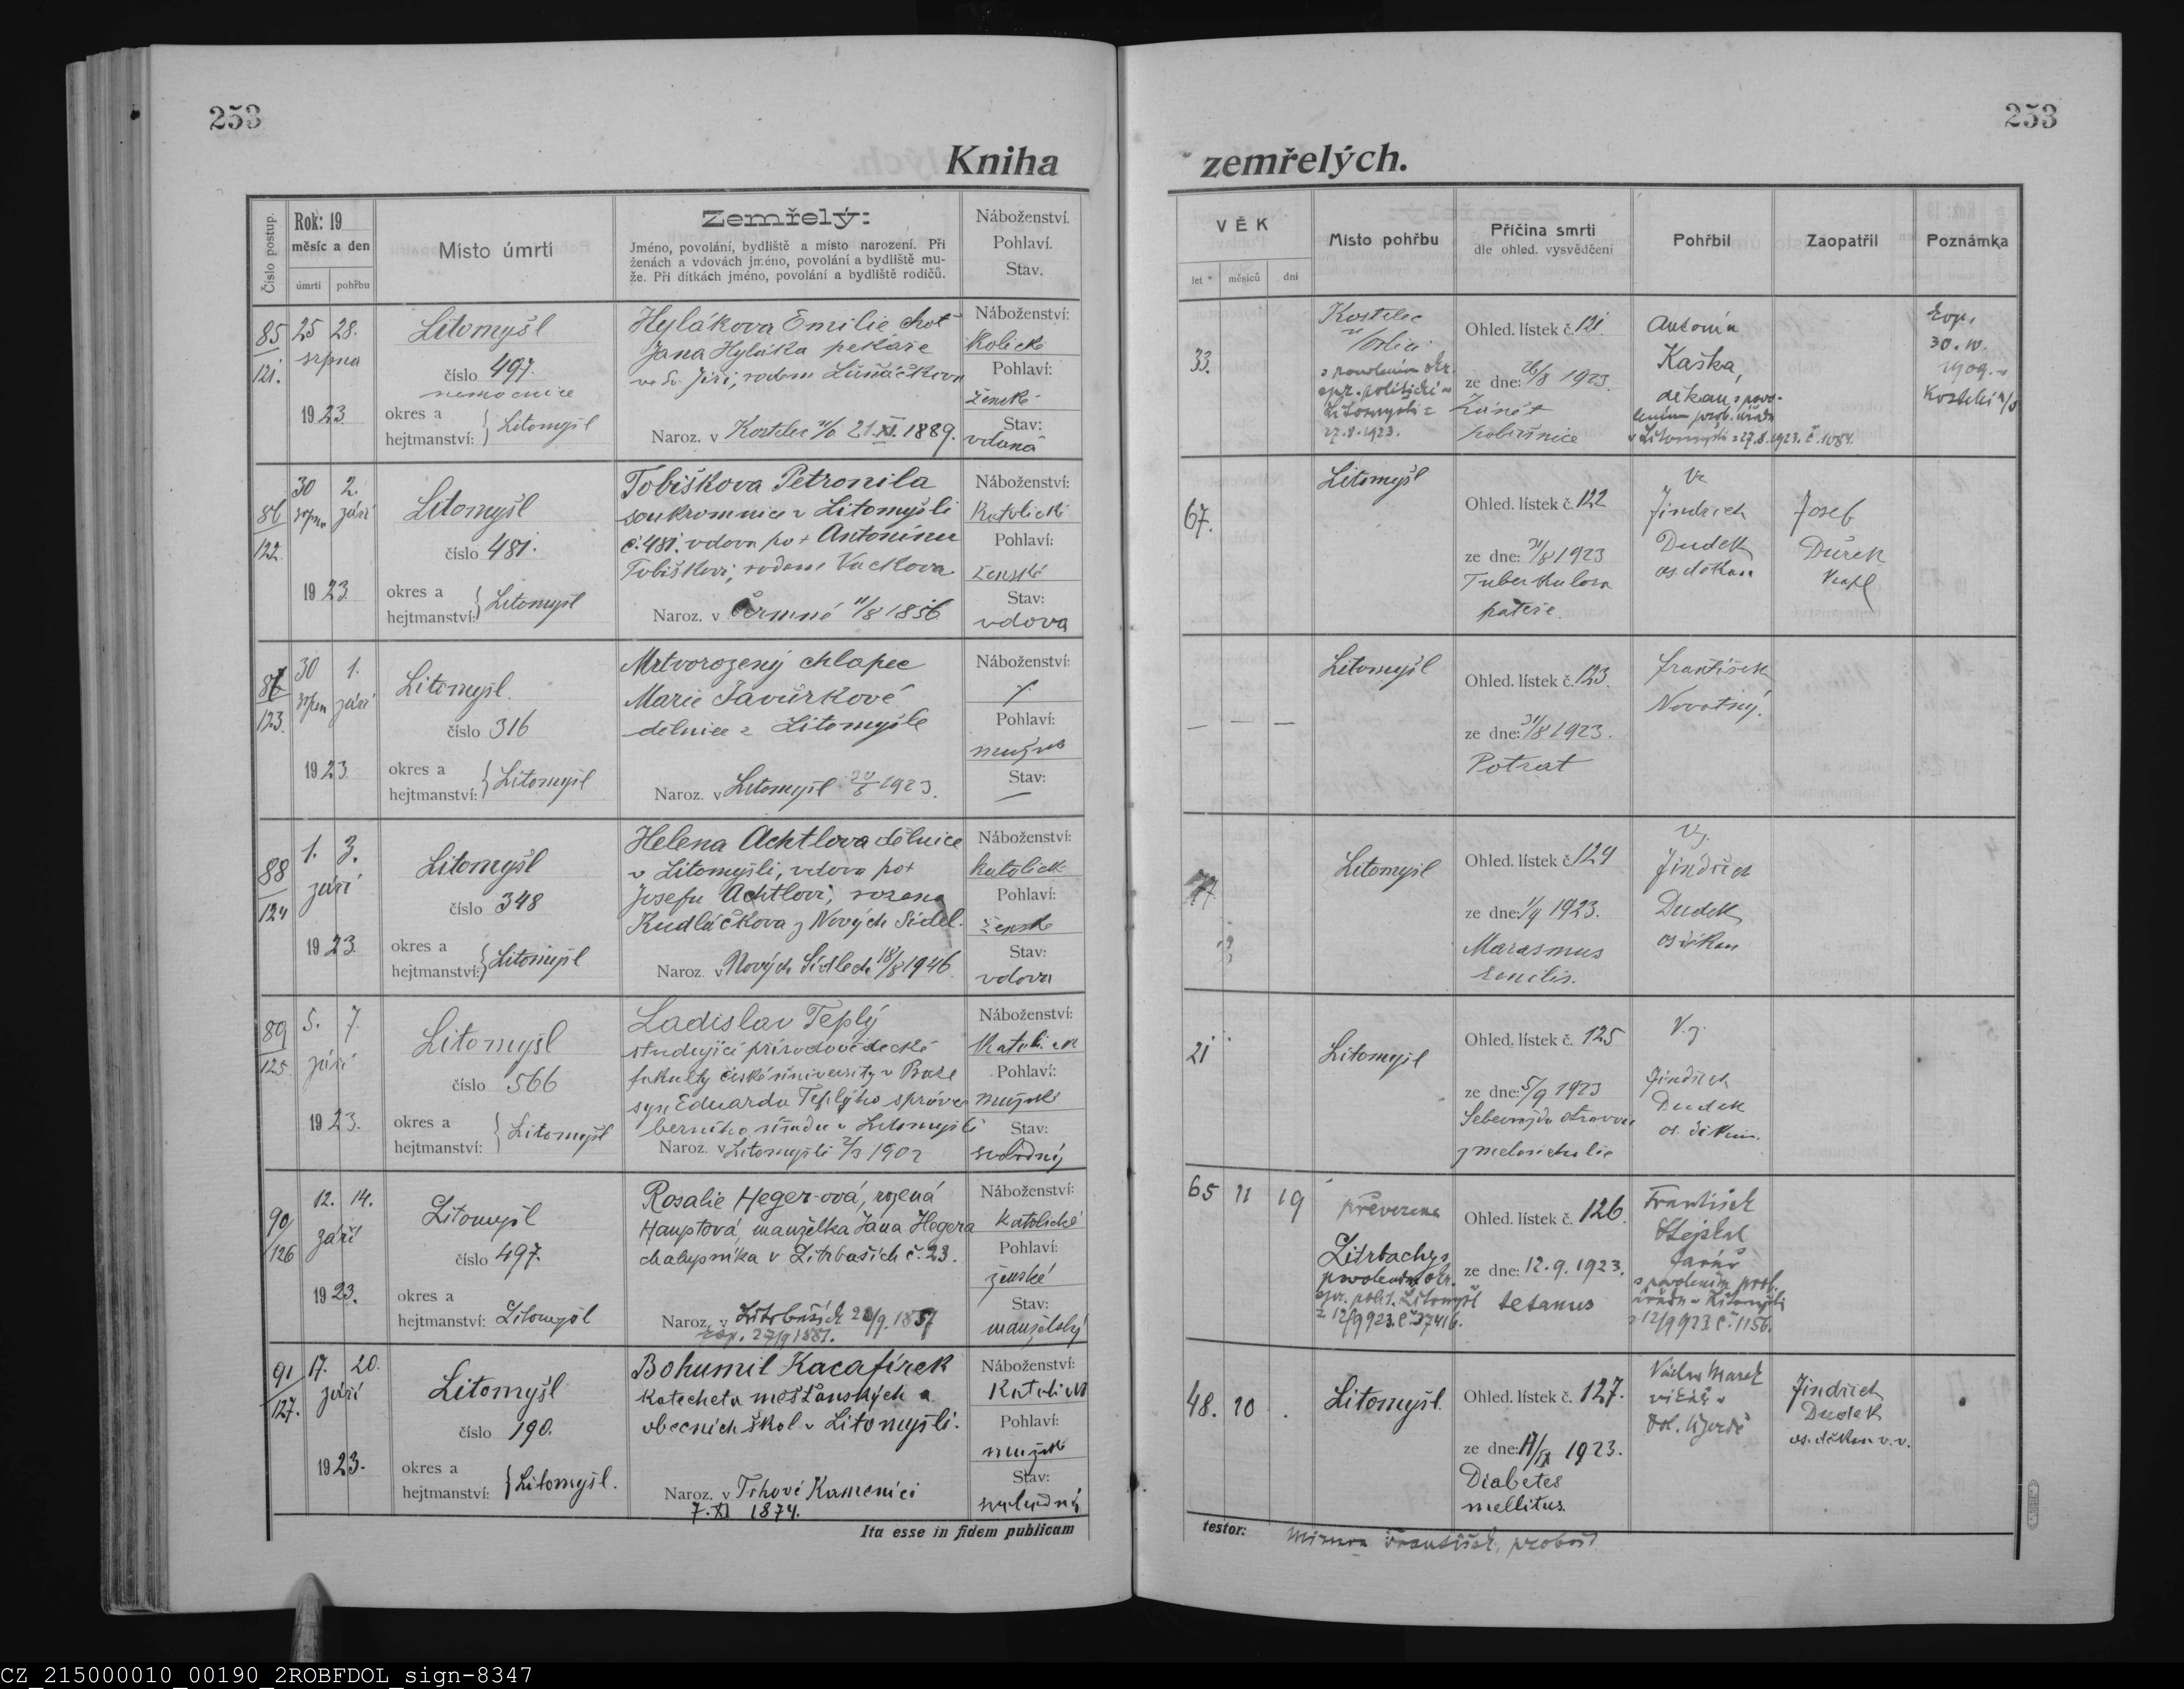 253
Kniha
Číslo postup.
Rok: 19
měsíc a den
úmrtí
pohřbu
Místo úmrtí
Zemřelý:
Jméno, povolání, bydliště a místo narození. Při
ženách a vdovách jméno, povolání a bydliště mu-
že. Při dítkách jméno, povolání a bydliště rodičů.
Náboženství.
Pohlaví.
Stav.
85
121.
25 28.
srpna
1923.
Litomyšl
číslo 497.
nemocnice
okres a
hejtmanství: Litomyšl
Hylákova Emilie choť
Jana Hyláka pekaře
Jiří, rodem
Naroz. v Kostelec n/O 21.XI.1889.
Náboženství:
Pohlaví:
ženské
Stav:
vdaná
86
122.
30 2
srpna září
1923.
Litomyšl
číslo 481.
okres a
hejtmanství: Litomyšl
Tobiškova Petronila
soukromnice v Litomyšli
č. 481. vdova po + Antonínu
Tobiškovi, rodem Vackova
Naroz. v Čermné 11/8 1856
Náboženství:
Katolické
Pohlaví:
ženské
Stav:
vdova
87
123.
30 1.
srpen září
1923.
Litomyšl.
číslo 316
okres a
hejtmanství: Litomyšl
Mrtvorozený chlapec
Marie Javůrkové
dělnice z Litomyšle
Naroz. v Litomyšl 30/8 1923.
Náboženství:
Pohlaví:
mužské
Stav:
88
124
1. 3.
září
1923.
Litomyšl
číslo 348
okres a
hejtmanství: Litomyšl
Helena Achtlova dělnice
v Litomyšli, vdova po +
Josefu Achtlovi, rozena
Kudláčkova z Nových Sídel.
Naroz. v Nových Sídlech 18/8 1946
Náboženství:
katolické
Pohlaví:
ženské
Stav:
vdova
89
125.
5. 7.
září
1923.
Litomyšl
číslo 566
okres a
hejtmanství: Litomyšl
Ladislav Teplý
studující přírodovědecké
fakulty české university v Praze
syn Eduarda Teplýho správce
berního úřadu v Litomyšli
Naroz. v Litomyšli 190
Náboženství:
Pohlaví:
mužské
Stav:
svobodný
90
126
12. 14.
září
1923.
Litomyšl
číslo 497.
okres a
hejtmanství: Litomyšl
Rosalie Heger-ová, rozená
Hauptová, manželka Jana Hegera
chalupníka v Litrbaších č. 23.
Naroz. v Litrbaších
Náboženství:
katolické
Pohlaví:
ženské
Stav:
manželský
91
127.
17. 20.
září
1923.
Litomyšl
číslo 190.
okres a
hejtmanství: Litomyšl.
Bohumil Kacafírek
katecheta měšťanských a
obecních škol v Litomyšli.
Naroz. v Trhové Kamenici
7.XI 1874.
Náboženství:
Pohlaví:
Stav:
svobodný
Ita esse in fidem publicam
253
zemřelých.
VĚK
let
měsíců
dní
Místo pohřbu
Příčina smrti
dle ohled. vysvědčení
Pohřbil
Zaopatřil
Poznámka
33.
Kostelec
n/Orlicí
s povolením okr.
spr. politické v
Litomyšli z
27.8.1923.
Ohled. lístek č. 121.
ze dne: 26/8 1923.
Zánět
pobřišnice
Antonín
Kaška,
děkan s povo-
lením
v Litomyšli z 27.8.1923. č. 1084.
30. IV.
1909. v
Kostelci n/O
67.
Litomyšl
Ohled. lístek č. 122
ze dne: 31/8 1923
Tuberkulosa
páteře.
Jindřich
Dudek
os. děkan
Josef
Kapl
— — —
Litomyšl
Ohled. lístek č. 123.
ze dne: 31/8 1923.
Potrat
František
Novotný.
77.
Litomyšl
Ohled. lístek č. 124
ze dne: 1/9 1923.
Marasmus
senilis.
Jindřich
Dudek
os děkan
21
Litomyšl
Ohled. lístek č. 125
ze dne: 5/9 1923
Sebevražda otravou
z melancholie
Jindřich
Dudek
os. děkan.
65 11 19
převezena
Litrbachy s
povolením okr.
spr. polit. Litomyšl
z 12/9 923. č. 37416.
Ohled. lístek č. 126.
ze dne: 12.9.1923.
tetanus
František
Stejskal
farář
s povolením
úřadu v Litomyšli
z 12/9 923 č. 1156.
48. 10 .
Litomyšl.
Ohled. lístek č. 127.
ze dne: 17/IX 1923.
Diabetes
mellitus.
Václav Marek
vikář v
Dol. Újezdě
Jindřich
Dudek
os. děkan v. v.
testor:
František, probošt
CZ_215000010_00190_2ROBFDOL_sign-8347